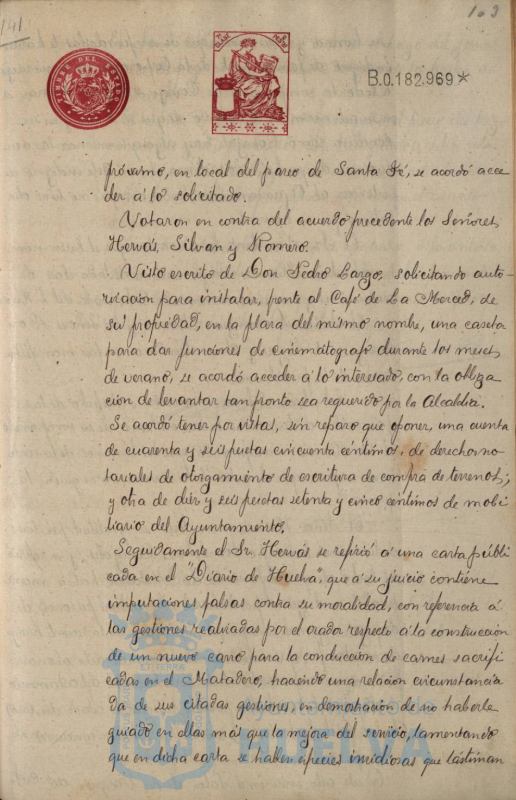 141
103
TIMBRE DEL ESTADO
B.0.182.969*
próximo, en local del paseo de Santa Fé, se acordó acce-
der á lo solicitado.
Votaron en contra del acuerdo precedente los Señores,
Hervás, Silvan y Romero.
Visto escrito de Don Pedro Largo, solicitando auto-
rización para instalar, frente al Café de La Merced, de
su propiedad, en la plaza del mismo nombre, una caseta
para dar funciones de cinematógrafo durante los meses
de verano, se acordó acceder á lo interesado, con la obliga
ción de levantar tan pronto sea requerido por la Alcaldía.
Se acordó tener por vistas, sin reparo que oponer, una cuenta
de cuarenta y seis pesetas cincuenta céntimos, de derechos no-
tariales de otorgamiento de escritura de compra de terrenos;
y otra de diez y seis pesetas setenta y cinco céntimos de mobi
liario del Ayuntamiento.
Seguidamente el Sr. Hervás se refirió á una carta públi
cada en el "Diario de Huelva", que á su juicio contiene
imputaciones falsas contra su moralidad, con referencia á
las gestiones realizadas por el orador respecto á la construcción
de un nuevo carro para la conducción de carnes sacrifi
cadas en el Matadero, haciendo una relación circunstancia
da de sus citadas gestiones, en demostración de no haberle
guiado en ellas más que la mejora del servicio, lamentando
que en dicha carta se hallen especies insidiosas que lastiman
HUELVA